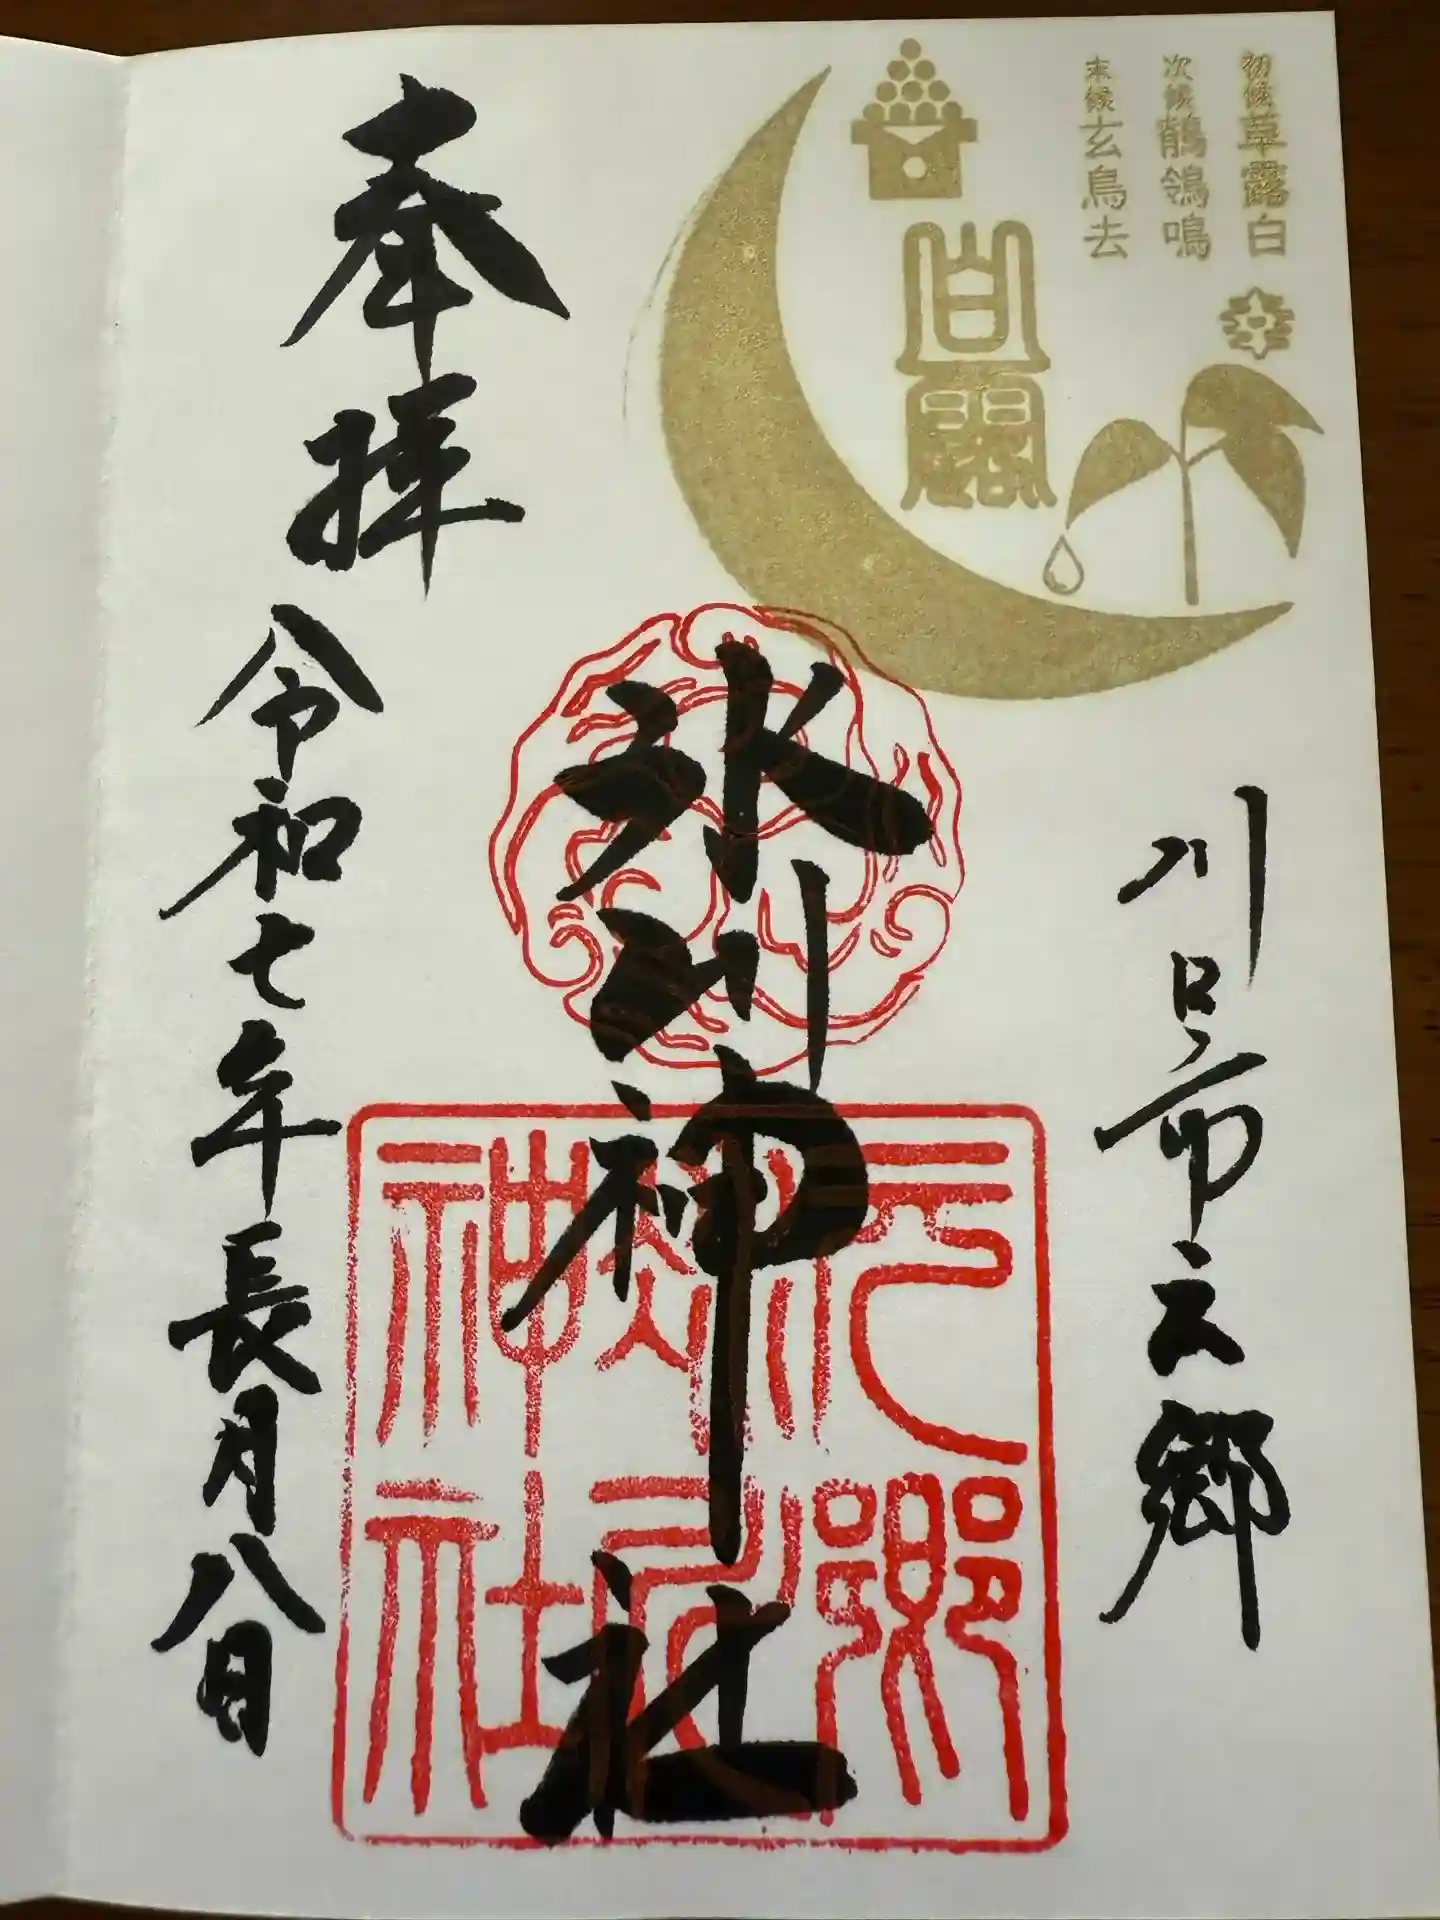 初候草露白
次候鶺鴒鳴
末候玄鳥去
白露
川口市元郷
氷川神社
元郷
氷川
神社
奉拝
令和七年長月八日